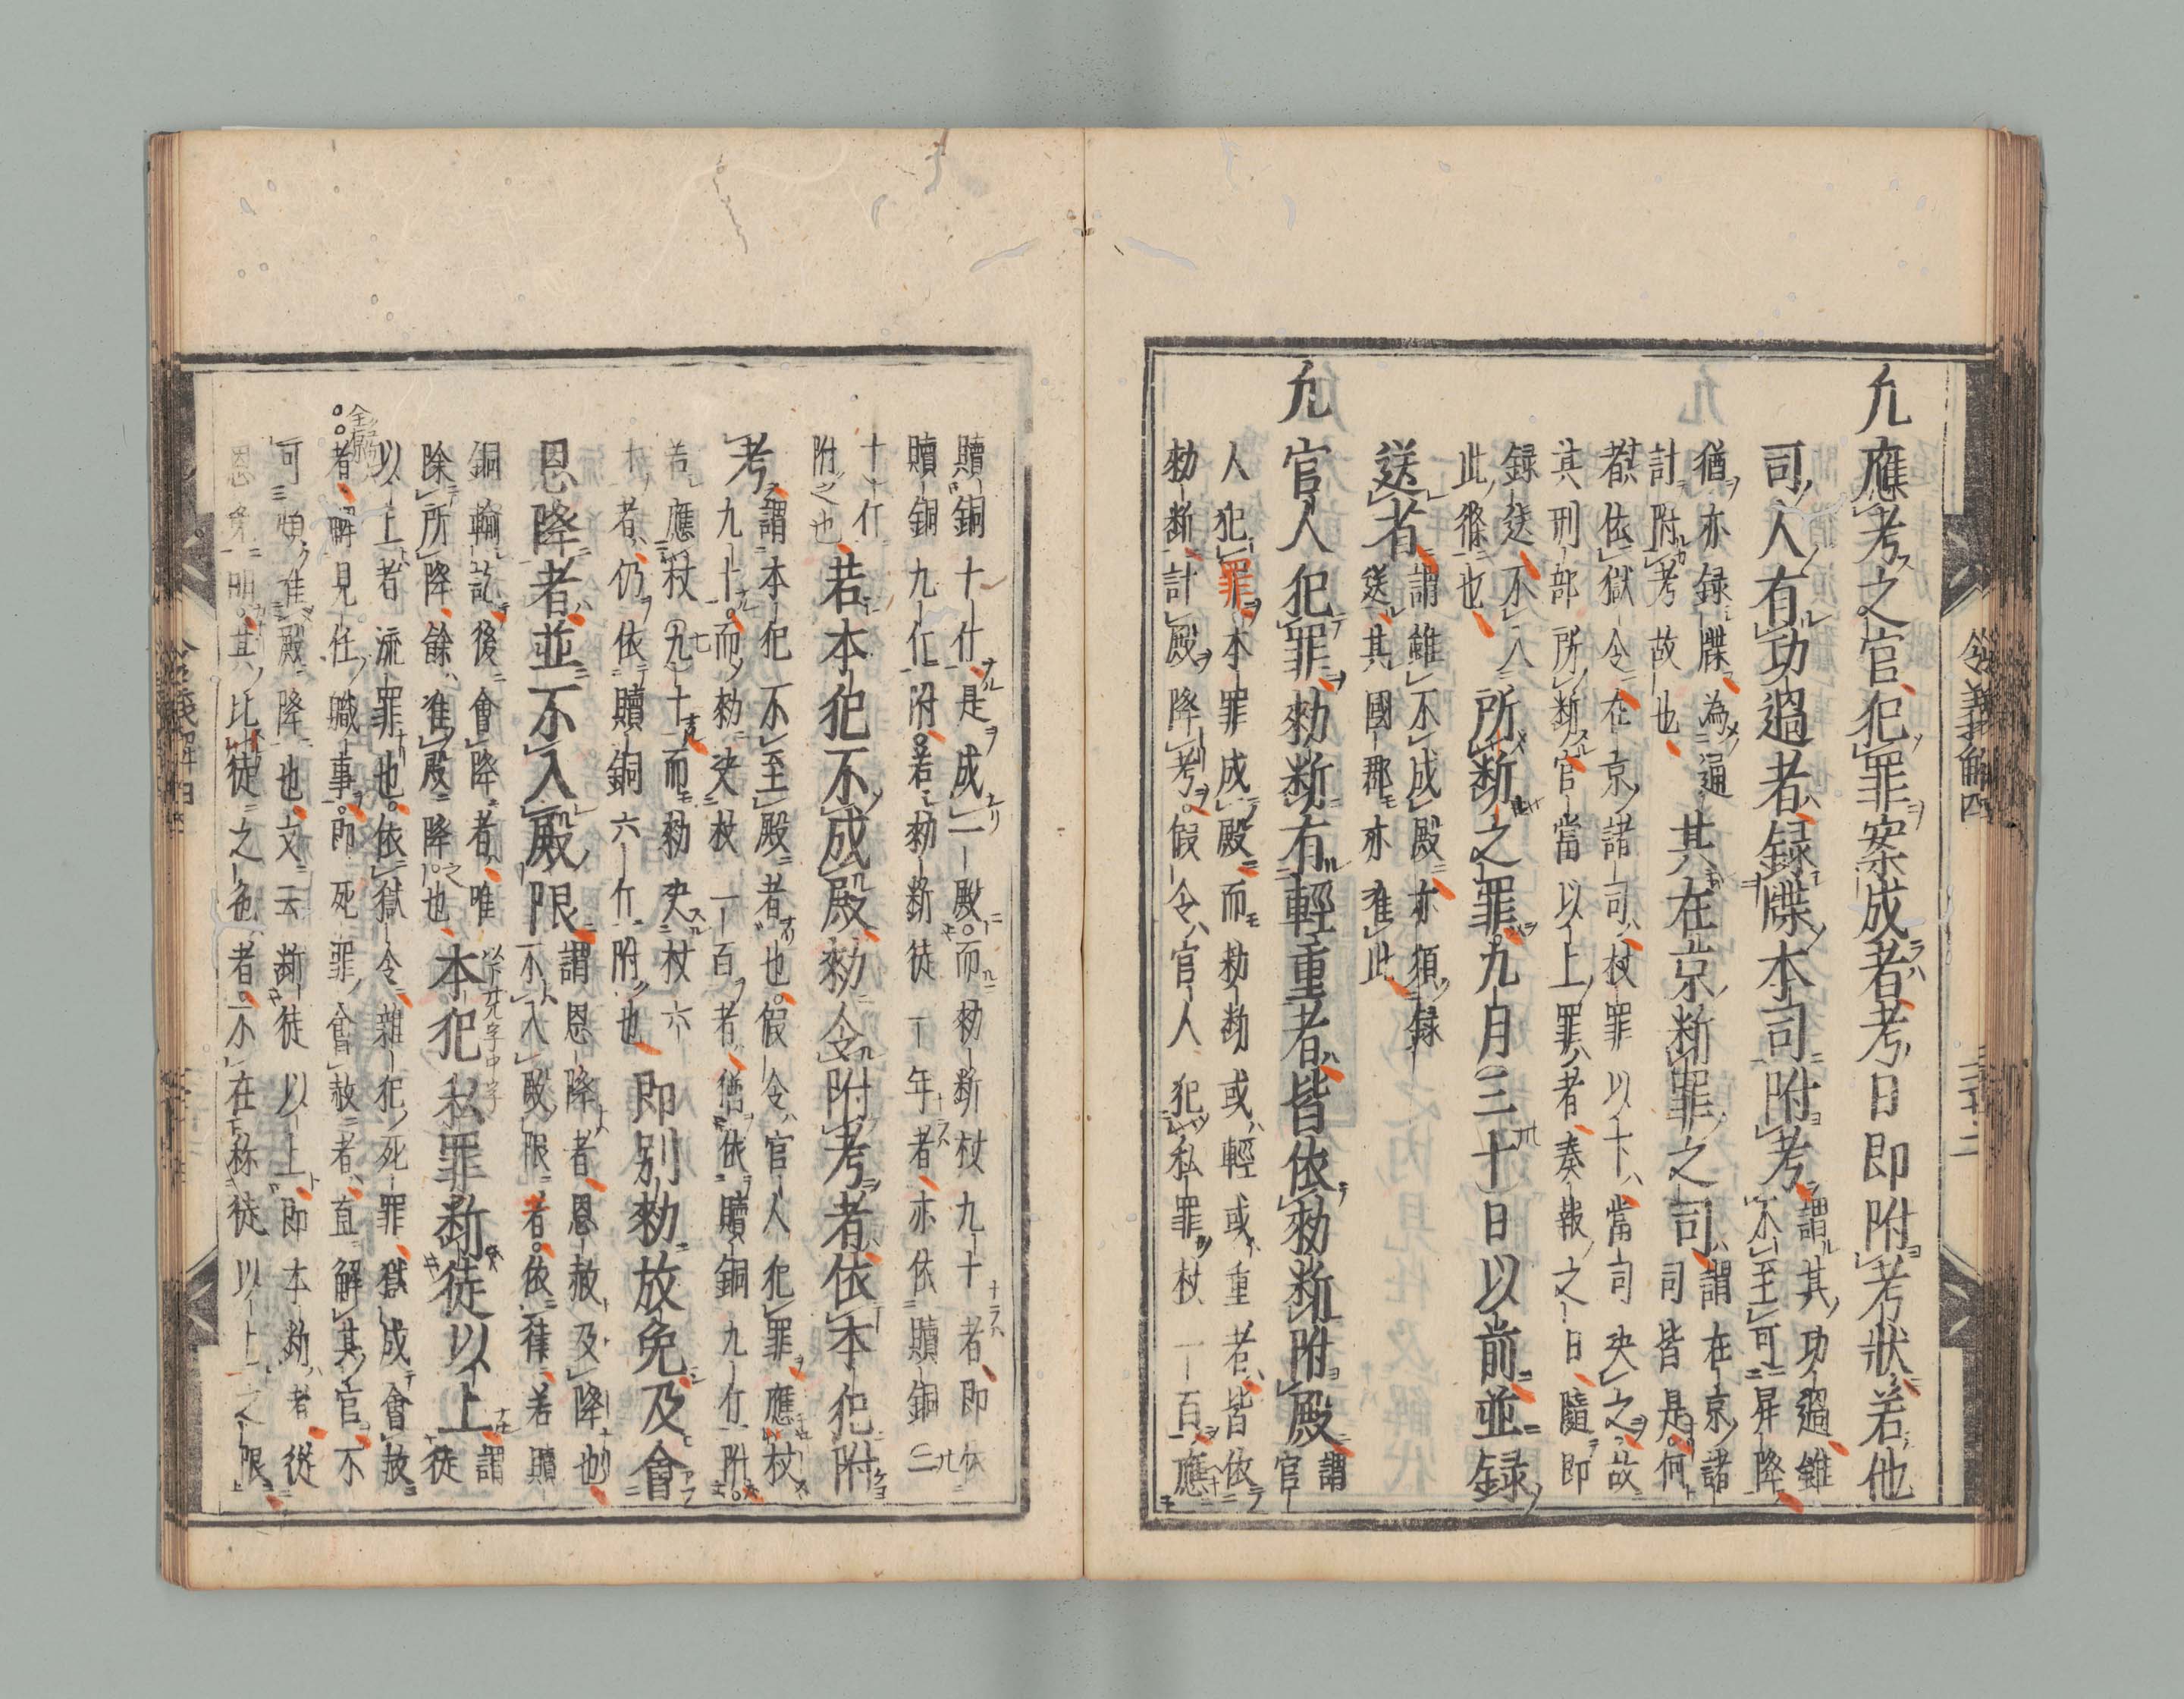 凢應考之官犯罪案成者考日即附考狀若他
司人有功過者録牒本司附考
謂其功過雖
不至可昇降
猶亦録牒為通
計附考故也
其在京断罪之司
謂在京諸
司皆是何
者依獄令在京諸司杖罪以下當司决之故
其刑部所断官當以上罪者奏報之日隨即
録送不入
此條也
所断之罪九月三十日以前並録
送者
謂雖不成殿亦須録
送其國郡亦准此
凢官人犯罪勑断有輕重者皆依勑断附殿
謂
官
人犯罪本罪成殿而勑断或輕或重者皆依
勑断計殿降考假令官人犯私罪杖一百應
令義解四
贖銅十斤是成一殿而勑断杖九十者即依
贖銅九斤附若勑断徒一年者亦依贖銅二
十斤
附之也
若本犯不成殿勑令附考者依本犯附
考
謂本犯不至殿者也假令官人犯罪應杖
九十而勑决杖一百者猶依贖銅九斤附
若應杖九十而勑决杖六
十者仍依贖銅六斤附也
即別勑放免及會
恩降者並不入殿限
謂恩降者恩赦及降也
不入殿限者依律若贖
銅輸訖後會降者唯
除所降餘准殿降也
本犯私罪断徒以上
謂
徒
以上者流罪也依獄令雜犯死罪獄成會赦
者解見任職事即死罪會赦者直解其官不
可煩准殿降也文云断徒以上即本勑者從
恩免明其比徒之色者不在称徒以上之限